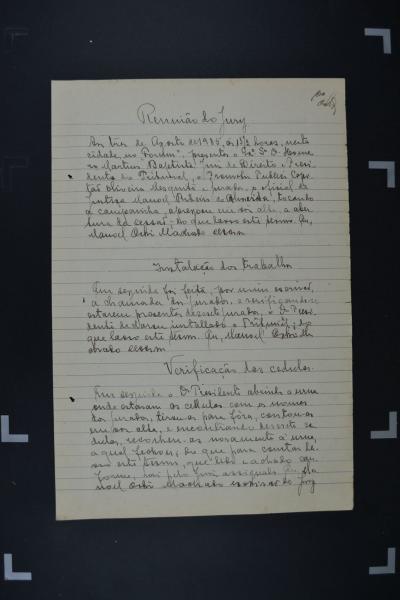 Reunião do Jury
Aos tres de Agosto de 1935, ás 13½ horas, nesta
cidade, no "Forum", presente o Snr. Dr. Home-
ro Martins Baptista Juiz de Direito e Presi-
dente do Tribunal, o Promotor Publico Capi-
tão Oliveira Mesquita e jurados, o official de
Justiça Manoel Ribeiro de Almeida, tocando
a campainha, annunciou em voz alta, a aber-
tura da sessão; do que lavro este termo. Eu,
Manoel Osbi Machado
Installação dos trabalhos
Em seguida foi feita, por mim escrivão,
a chamada dos jurados, e verificando-se
estarem presentes dezesete jurados, o Dr. Presi-
dente declarou installado o Tribunal; do
que lavro este termo. Eu, Manoel Osbi M
achado
Verificação das cedulas
Em seguida o Dr. Presidente abrindo a urna
onde estavam as cedulas com os nomes
dos jurados, tirou-as para fóra, contou-as
em voz alta, e encontrando dezesete ce-
dulas, recolheu-as novamente á urna,
a qual fechou; do que para constar la-
vro este termo, que lido e achado con-
forme, vai pelo Juiz assignado. Eu, Ma
noel Osbi Machado escrivão do Jury